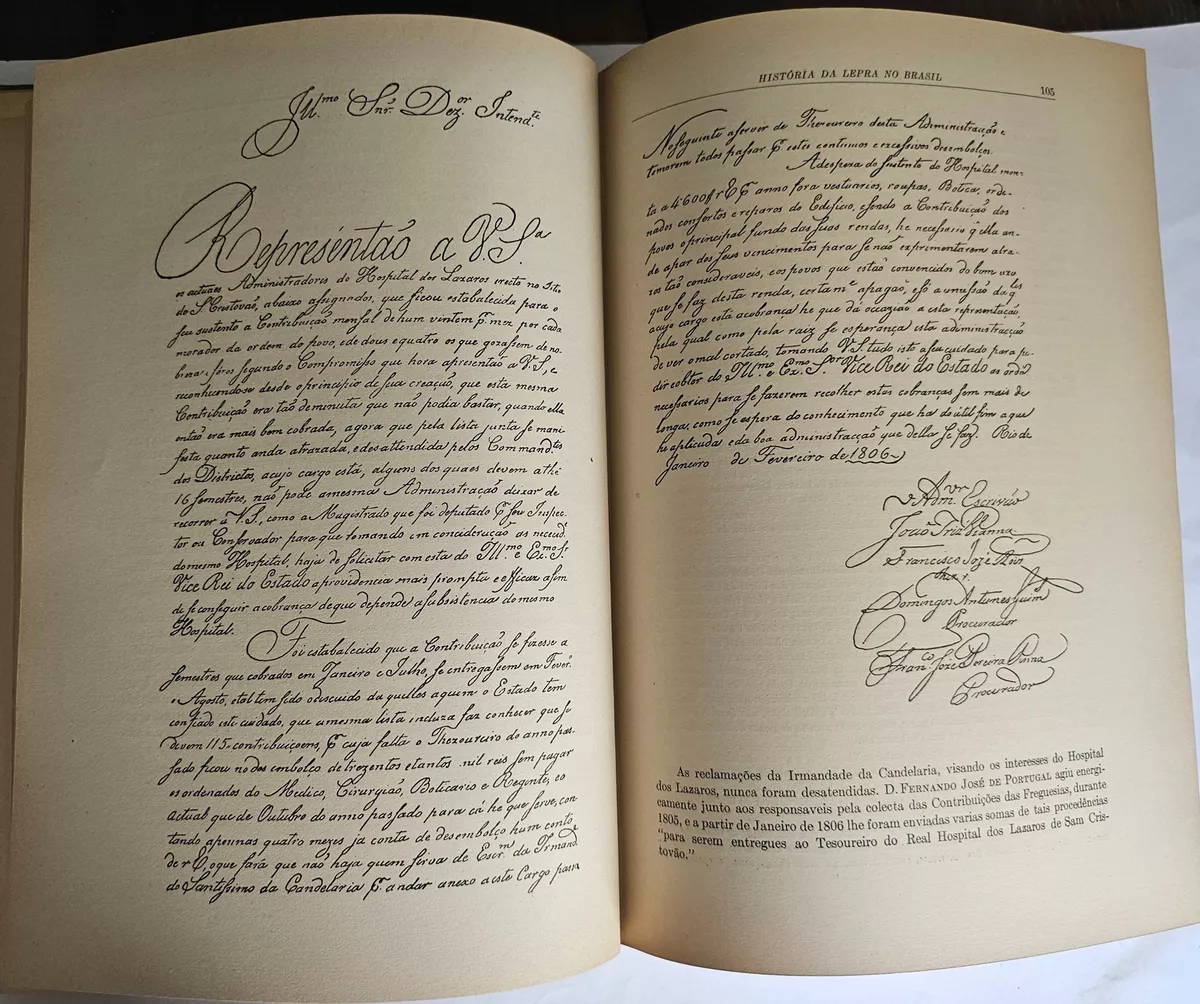 Ill.mo Snr. Dez.or Intend.te
Representão a V. S.a
os actuaes Administradores do Hospital dos Lazaros erecto no Sitio
de S. Cristovaõ, abaixo assignados, que ficou estabalecida para o
seu sustento a Contribuiçaõ mensal de hum vintem p.r mez por cada
morador da ordem do povo, e de dous e quatro os que gozassem de no-
breza e foros segundo o Compromisso que hora apresentaõ a V. S., e
reconhecendose desde o principio de sua creaçaõ, que esta mesma
Contribuiçaõ era taõ deminuta que naõ podia bastar, quando ella
entaõ era mais bem cobrada, agora que pela lista junta se mani-
festa quanto anda atrazada, e desattendida pelos Command.tes
dos Districtos, a cujo cargo está, alguns dos quaes devem athé
16 semestres, naõ pode a mesma Administraçaõ deixar de
recorrer à V. S., como a Magistrado que foi deputado p.r seu Inspec-
tor ou Conservador para que tomando em concideraçaõ as nececid.
do mesmo Hospital, haja de solicitar com esta do Ill.mo e Ex.mo Sr.
Vice Rei do Estado a providencia mais prompta e efficax afim
de se conseguir a cobrança de que depende a subsistencia do mesmo
Hospital.
Foi estabalecido que a Contribuiçaõ se fizesse a
semestres que cobrados em Janeiro e Julho, se entregassem em Fever.
e Agosto, e tal tem sido o descuido daquelles a quem o Estado tem
confiado este cuidado, que a mesma lista incluza faz conhecer que se
devem 115 contribuiçoens, p.r cuja falta o Thezoureiro do anno pas-
sado ficou no desembolço de trezentos e tantos mil reis sem pagar
os ordenados do Medico, Cirurgiaõ, Boticario e Regente, e o
actual que de Outubro do anno passado para cá he que serve, con-
tando apennas quatro mezes ja conta de desembolço hum conto
de r, o que fará que naõ haja quem sirva de Escr.m da Irmand.
do Santissimo da Candelaria p.r andar anexo a este Cargo passar
HISTÓRIA DA LEPRA NO BRASIL
105
No seguinte a server de Thezoureiro desta Administraçaõ e
temerem todos passar p.r estes continuos e excessivos desembolços.
A despeza do sustento do Hospital mon-
ta a 4:600 p.r anno fora vestuarios, roupas, Botica, orde-
nados consertos e reparos do Edificio, e sendo a Contribuiçaõ dos
povos o principal fundo das suas rendas, he necessario q. ella an-
de a par dos seus vencimentos para se naõ exprimentarem atra-
zos taõ consideraveis, e os povos que estaõ convencidos do bom uzo
que se faz desta renda, certam.e a pagaõ, e só a omissaõ daq.les
a cujo cargo está a cobrança he que dá occaziaõ a esta representaçaõ,
pela qual como pela raiz se esperança esta administracçaõ
de ver o mal cortado, tomando V. S. tudo isto a seu cuidado para pe-
dir e obter do Ill.mo e Ex.mo S.or Vice Rei do Estado as ord.s
necessarias para se fazerem recolher estas cobranças sem mais de-
longa, como se espera do conhecimento que ha do util fim a que
he aplicada e da boa administracçaõ que della se faz. Rio de
Janeiro de Fevereiro de 1806
Escrivaõ
Vianna
Francisco Jozé
Thez.r
Domingos Antunes Guim
Procurador
Fran.co José Pereira Penna
Procurador
As reclamações da Irmandade da Candelaria, visando os interesses do Hospital
dos Lazaros, nunca foram desatendidas. D. FERNANDO JOSÉ DE PORTUGAL agiu energi-
camente junto aos responsaveis pela colecta das Contribuições das Freguesias, durante
1805, e a partir de Janeiro de 1806 lhe foram enviadas varias somas de tais procedências
"para serem entregues ao Tesoureiro do Real Hospital dos Lazaros de Sam Cris-
tovão."